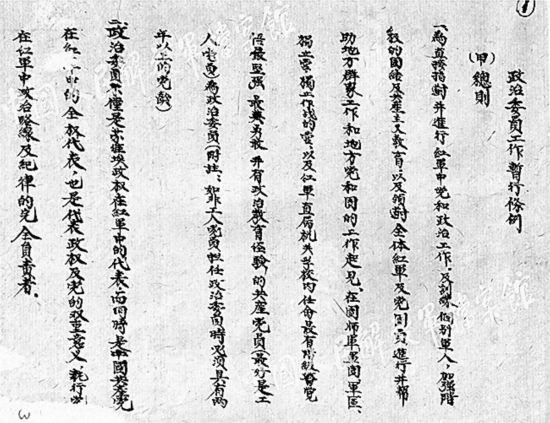 1
政治委員工作暫行條例
(甲)總則
一、為直接指導並進行紅軍中党和政治工作,及訓練 個別軍人,加强階
級的團結及共產主义教育,以及領導全体紅軍及党團員進行並幫
助地方群眾工作和地方党和團的工作起見,在團師軍及團軍區、
獨立營獨立作战的 連,以及紅軍直屬机关学校內任命最有階級覺悟
最堅强 最勇敢 并有政治教育経驗的共產党員(最好是工
人党員)為政治委員(附註:如非工人党員担任政治委員時必須具有兩
年以上的党齡)
二、政治委員不僅是蘇維埃政权在紅軍中的代表,而同時是中國共產党
在紅軍中的全权代表,也是代表政权及党的双重意义,執行
在紅軍中政治路線及紀律的完全負責者。